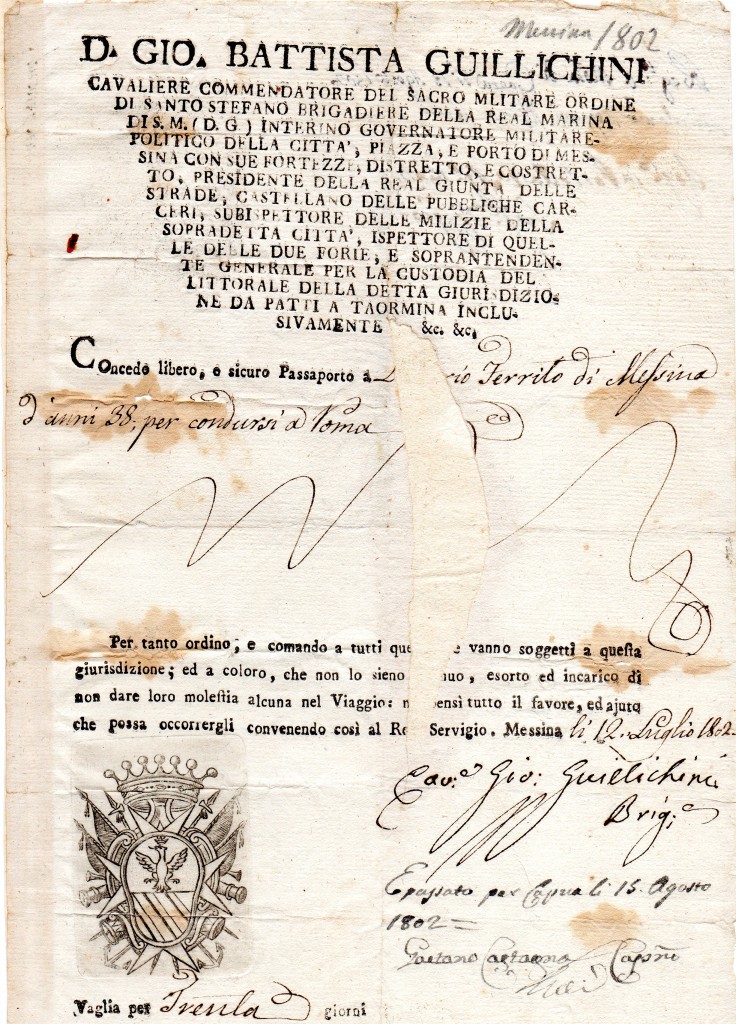 Messina 1802
D. GIO. BATTISTA GUILLICHINI
CAVALIERE COMMENDATORE DEL SACRO MLITARE ORDINE
DI SANTO STEFANO BRIGADIERE DELLA REAL MARINA
DI S. M. ( D. G. ) INTERINO GOVERNATORE MILITARE-
POLITICO DELLA CITTA', PIAZZA, E PORTO DI MES-
SINA CON SUE FORTEZZE, DISTRETTO, E COSTRET-
TO, PRESIDENTE DELLA REAL GIUNTA DELLE
STRADE, CASTELLANO DELLE PUBBLICHE CAR-
CERI, SUBISPETTORE DELLE MILIZIE DELLA
SOPRADETTA CITTA', ISPETTORE DI QUEL-
LE DELLE DUE FORIE, E SOPRANTENDEN-
TE GENERALE PER LA CUSTODIA DEL
LITTORALE DELLA DETTA GIURISDIZIO-
NE DA PATTI A TAORMINA INCLU-
SIVAMENTE &c. &c.
Concedo libero, e sicuro Passaporto a rio Territo di Messina
d'anni 38; per condursi a Roma
Per tanto ordino; e comando a tutti que e vanno soggetti a questa
giurisdizione; ed a coloro, che non lo sieno nuo, esorto ed incarico di
non dare loro molestia alcuna nel Viaggio: m pensì tutto il favore, ed ajuto
che possa occorrergli convenendo così al Re Servigio. Messina li 12. Luglio 1802
Cav.e Gio: Guillichini
Brig.e
E passato per Capua li 15. Agosto
1802 =
Gaetano Castagna
Vaglia per Trenta giorni